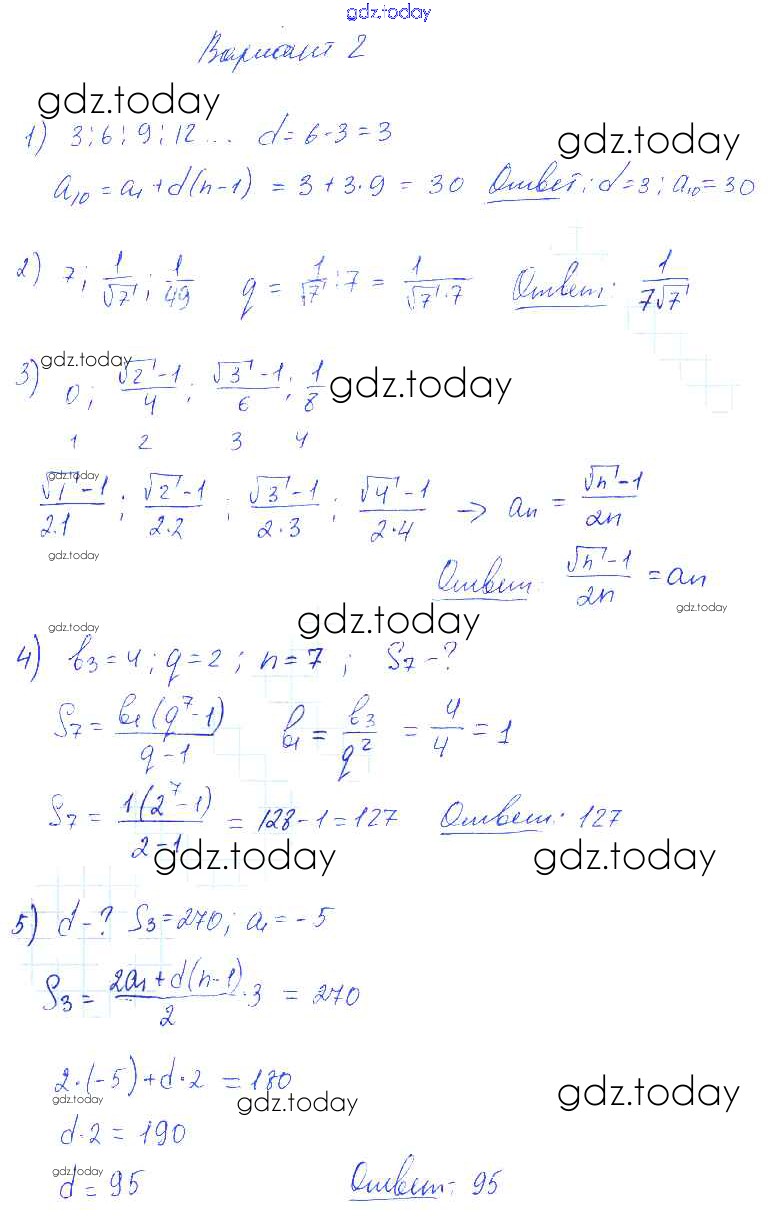 gdz.today
Вариант 2
gdz.today
1) 3; 6; 9; 12... d = 6-3 = 3
gdz.today
a₁₀ = a₁ + d(n-1) = 3 + 3·9 = 30 Ответ: d=3; a₁₀=30
2) 7; 1/√7; 1/49 q = 1/√7 : 7 = 1/(√7·7) Ответ: 1/(7√7)
gdz.today
3) 0; (√2-1)/4; (√3-1)/6; 1/8
gdz.today
1 2 3 4
gdz.today
(√1-1)/(2·1); (√2-1)/(2·2); (√3-1)/(2·3); (√4-1)/(2·4) → aₙ = (√n-1)/(2n)
gdz.today
Ответ: (√n-1)/(2n) = aₙ
gdz.today
gdz.today
gdz.today
4) b₃=4; q=2; n=7; S₇-?
S₇ = b₁(q⁷-1)/(q-1) b₁ = b₃/q² = 4/4 = 1
S₇ = 1(2⁷-1)/(2-1) = 128-1 = 127 Ответ: 127
gdz.today gdz.today
5) d-? S₃=270; a₁=-5
S₃ = (2a₁+d(n-1))/2 · 3 = 270
2·(-5)+d·2 = 180
gdz.today gdz.today gdz.today
d·2 = 190
gdz.today
d = 95 Ответ: 95